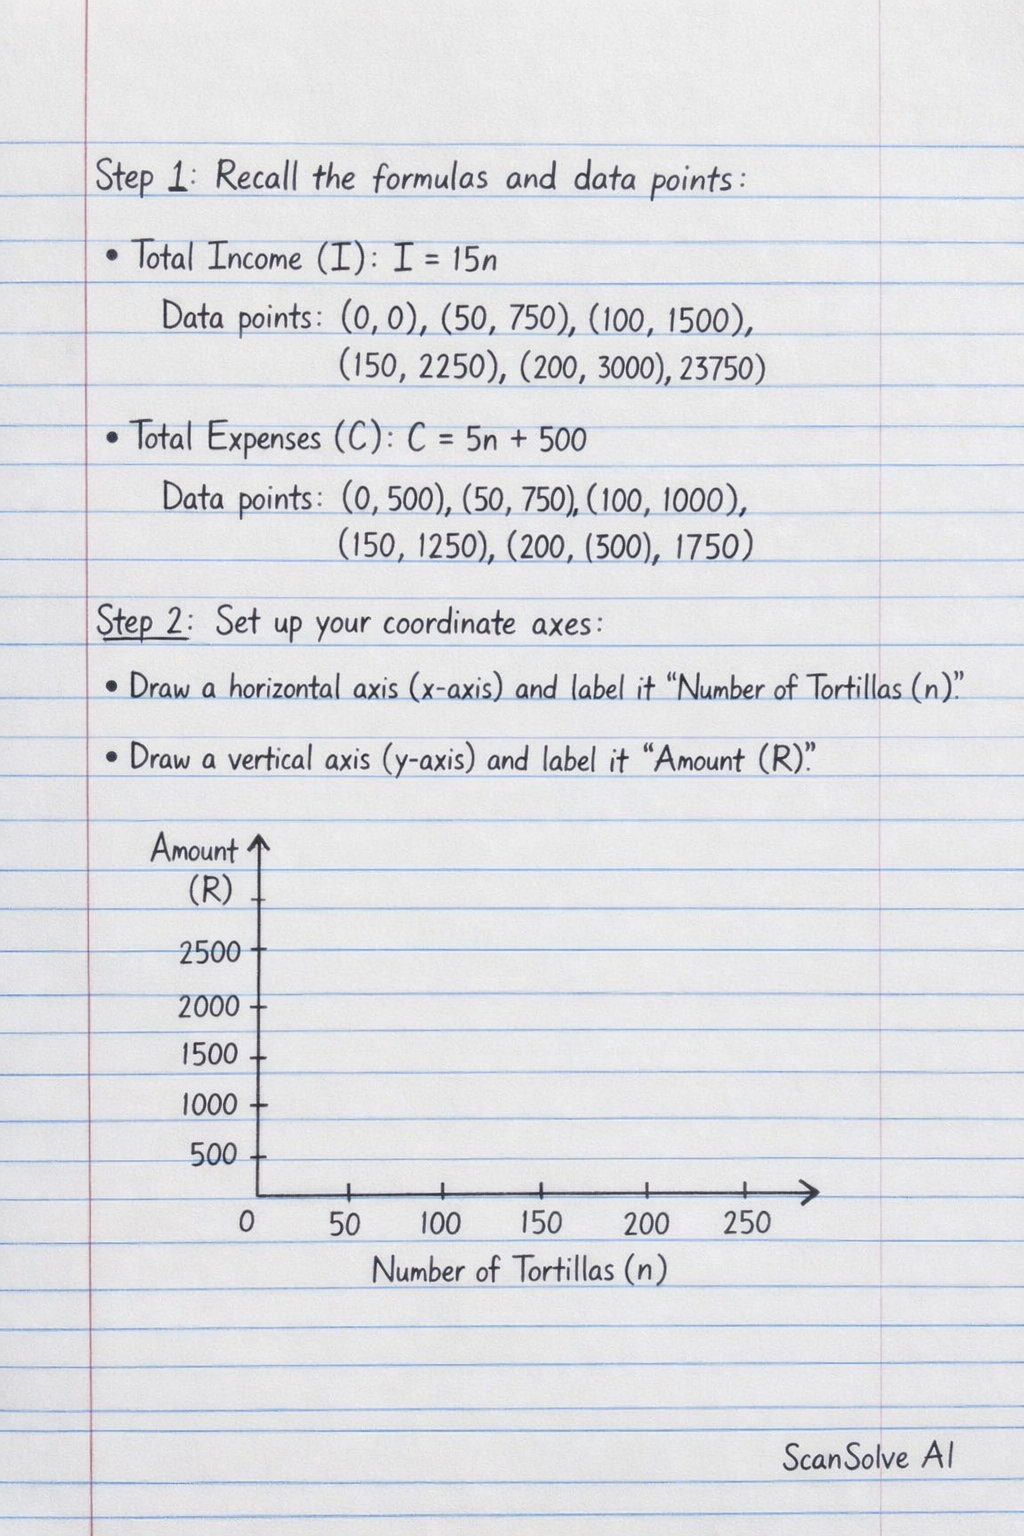 Step 1: Recall the formulas and data points:
• Total Income (I): I = 15n
Data points: (0, 0), (50, 750), (100, 1500),
(150, 2250), (200, 3000), 23750)
• Total Expenses (C): C = 5n + 500
Data points: (0, 500), (50, 750), (100, 1000),
(150, 1250), (200, (500), 1750)
Step 2: Set up your coordinate axes:
• Draw a horizontal axis (x-axis) and label it “Number of Tortillas (n).”
• Draw a vertical axis (y-axis) and label it “Amount (R).”
Amount
(R)
2500
2000
1500
1000
500
0 50 100 150 200 250
Number of Tortillas (n)
ScanSolve AI